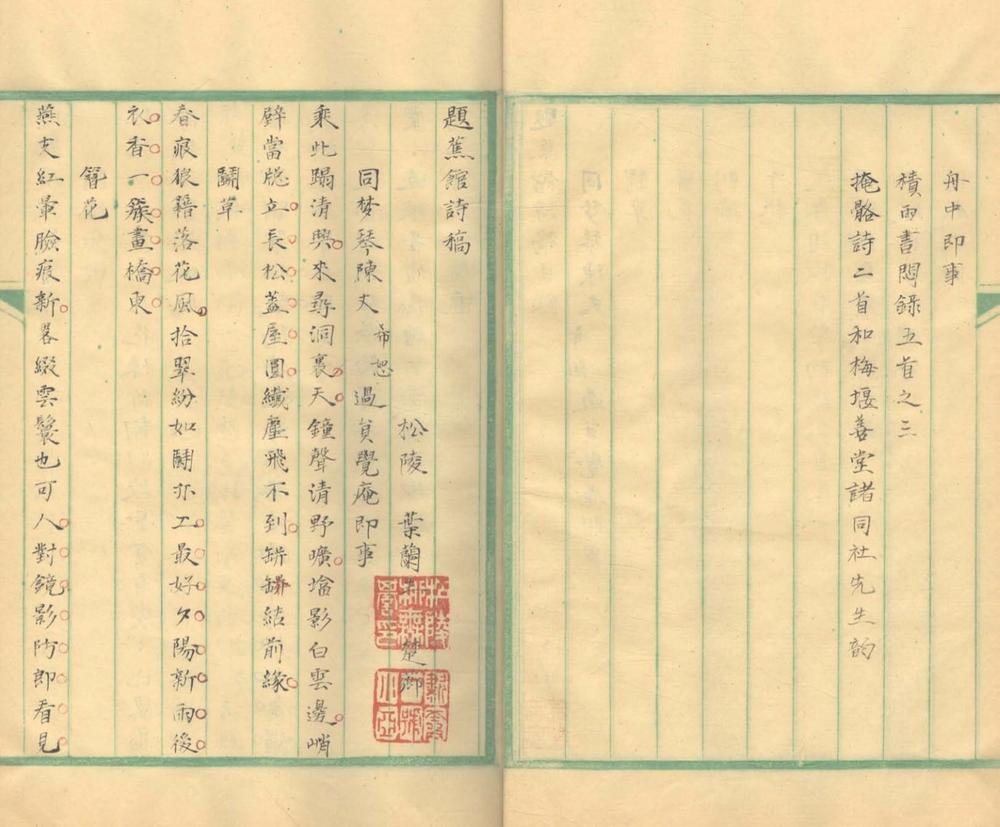 舟中即事
積雨書悶錄五首之三
掩骼詩二首和梅堰善堂諸同社先生韵
題蕉館詩稿
松陵 葉蘭 楚卿
同梦琴陳丈希恕過貟覺庵即事
乘此蹋清興來尋洞裏天鐘聲清野曠墖影白雲邊峭
壁當牕立長松蓋屋圓纖塵飛不到缾鉢結前緣
鬭草
春痕狼籍落花風拾翠紛如鬭亦工最好夕陽新雨後
衣香一簇畫橋東
簪花
燕支紅暈臉痕新畧綴雲鬟也可人對鏡影防郎看見